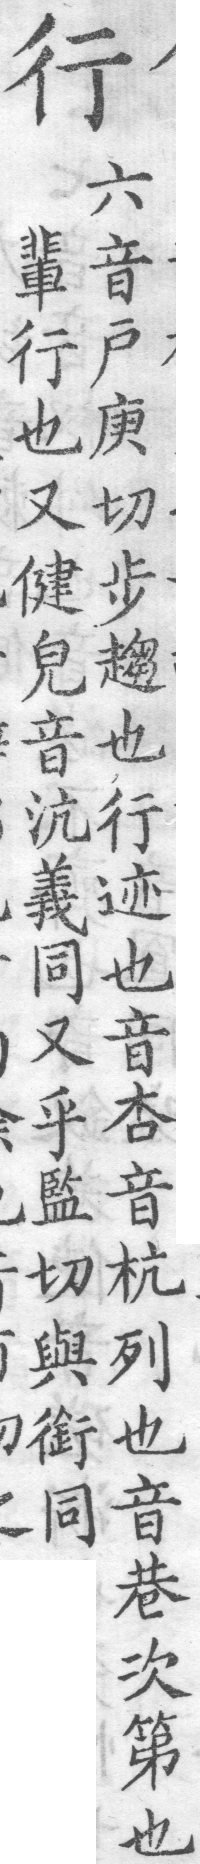 行
六音户庚切步趨也行迹也音杏音杭列也音巷次第也
輩行也又健皃音沆義同又乎監切與銜同